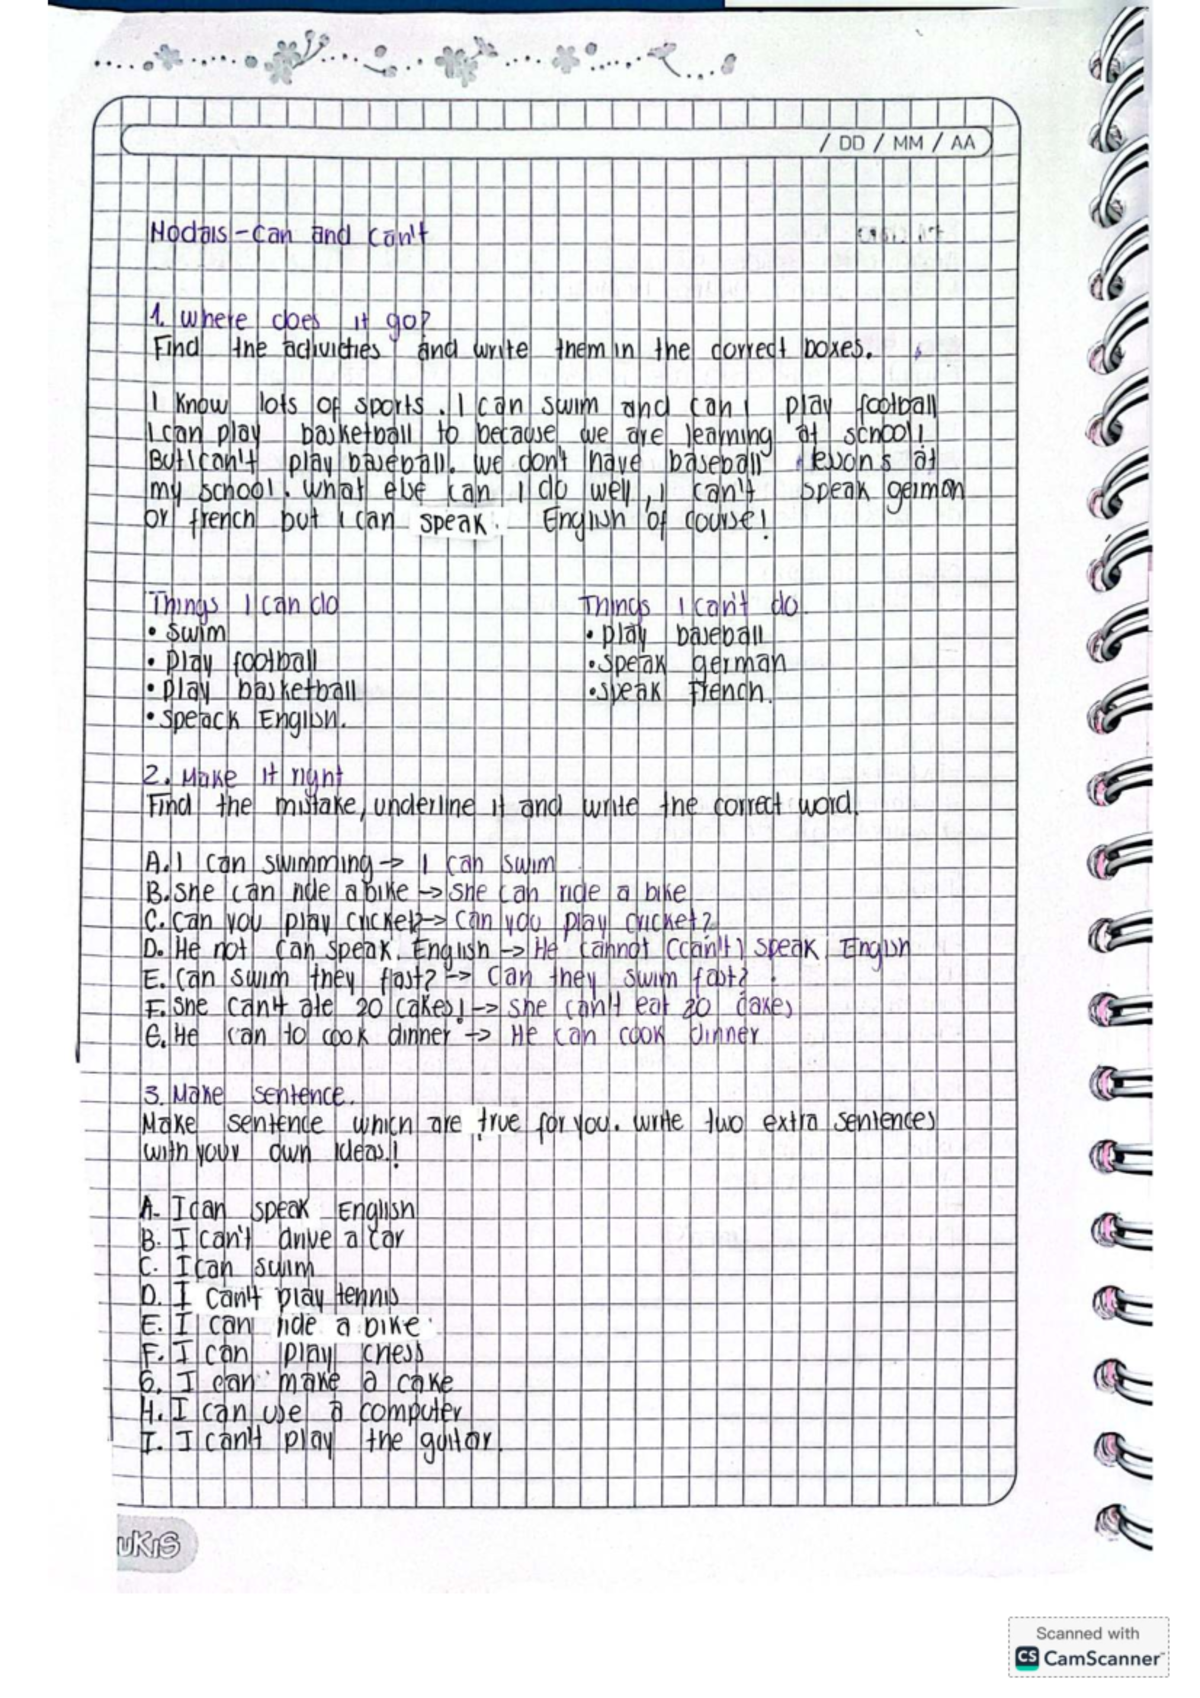 / DD / MM / AA
Modals - can and can't
1. where does it go?
Find the activicties and write them in the correct boxes.
I know lots of sports. I can swim and can I play football
I can play basketball to because we are learning at school!
But I can't play baseball. we don't have baseball lesson s at
my school. what else can I do well, I can't speak german
or french but I can speak. English of course!
Things I can do
• swim
• play football
• play basketball
• speack English.
Things I can't do
• play baseball
• speak german
• speak french.
2. Make it right
Find the mistake, underline it and write the correct word.
A. I can swimming -> I can swim
B. she can ride a bike -> she can ride a bike
C. can you play cricket? -> can you play cricket?
D. He not can speak. English -> He cannot (can't) speak English
E. can swim they fast? -> can they swim fast?
F. She can't ate 20 cakes! -> she can't eat 20 cakes
G. He can to cook dinner -> He can cook dinner
3. Make sentence.
Make sentence which are true for you. write two extra sentences
with your own ideas.!
A. I can speak English
B. I can't drive a car
C. I can swim
D. I can't play tennis
E. I can ride a bike
F. I can play chess
G. I can make a cake
H. I can use a computer
I. I can't play the guitar.
UKIS
Scanned with
CS CamScanner